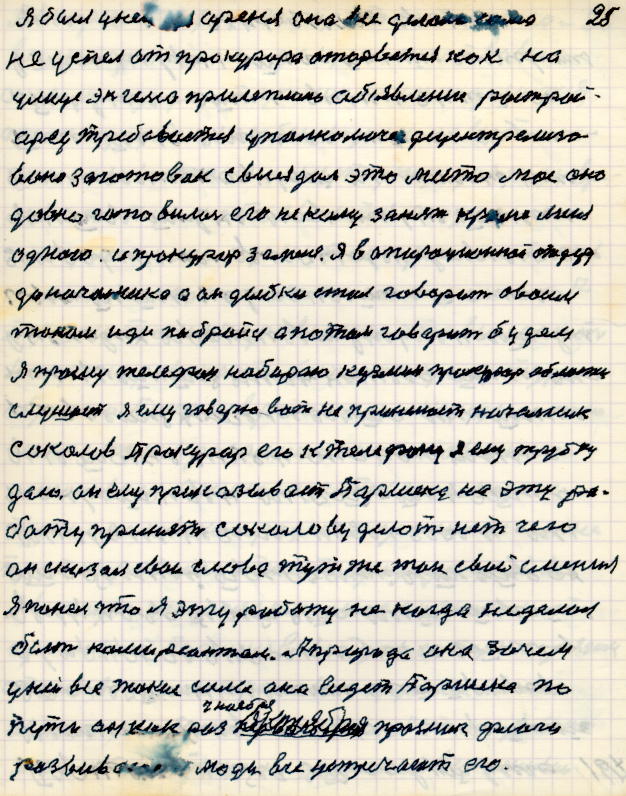 Я был у ней арсня она все делала сама 25
не успел от прокурора оторватся как на
улице энгелса прилеплано абявление растрой-
арсу требовается уполномоче децентрализо
вано заготовак свыгдал это место мое оно
давно готовилос его некому занят кроме меня
одного. и прокурор за меня. Я в операционной отдел
до началника а он дыбки стал говорит своим
таком иди по бройи а потом говорит будем
я прошу телефон набираю кузмин прокурор области
слушает я ему говорю вот не принимает началник
Соколов Прокурор его к телефону я ему трубку
даю. он ему приказывает Паршека на эту ра-
боту принять Соколову делот нет чего
он сказал свои слова тут же тон свой сменил
Я понел что я эту работу не когда не делал
быт комерсантом. Априрода она зачем
у ней все такое сила она ведет Паршека по
пути он как раз 7 ноября празник флаги
развива люди все устречает его.